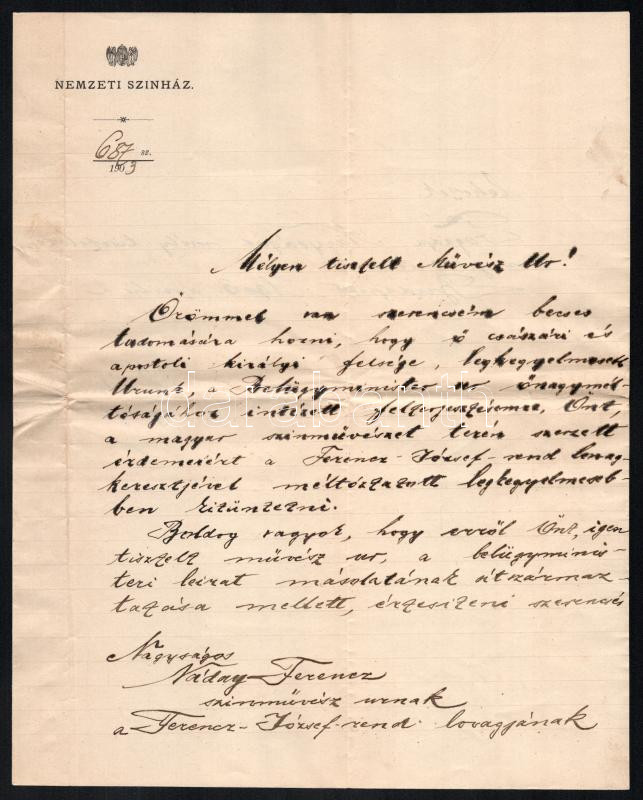 NEMZETI SZINHÁZ.
687 sz.
1903
Mélyen tisztelt Művész Ur!
Örömmel van szerencsém becses
tudomására hozni, hogy ő császári és
apostoli királyi felsége, legkegyelmesebb
Urunk, a Belügyminister ur őnagymél-
tóságához intézett felterjesztésemre, Önt,
a magyar szinművészet terén szerzett
érdemeiért a Ferencz-József-rend lovag-
keresztjével méltóztatott legkegyelmeseb-
ben kitüntetni.
Boldog vagyok, hogy erről Önt, igen
tisztelt művész ur, a belügyminis-
teri leirat másolatának átszármaz-
tatása mellett, értesiteni szerencsés
Nagyságos
Náday Ferencz
szinművész urnak
a Ferencz-József-rend lovagjának
darabanth